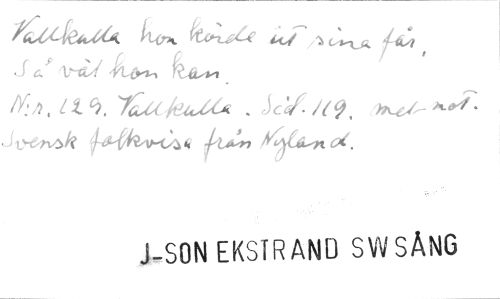 Vallkulla hon körde ut sina får,
så väl hon kan.
N:r. 129. Vallkulla. Sid. 119. met not.
Svensk folkvisa från Nyland.
J-SON EKSTRAND SW SÅNG